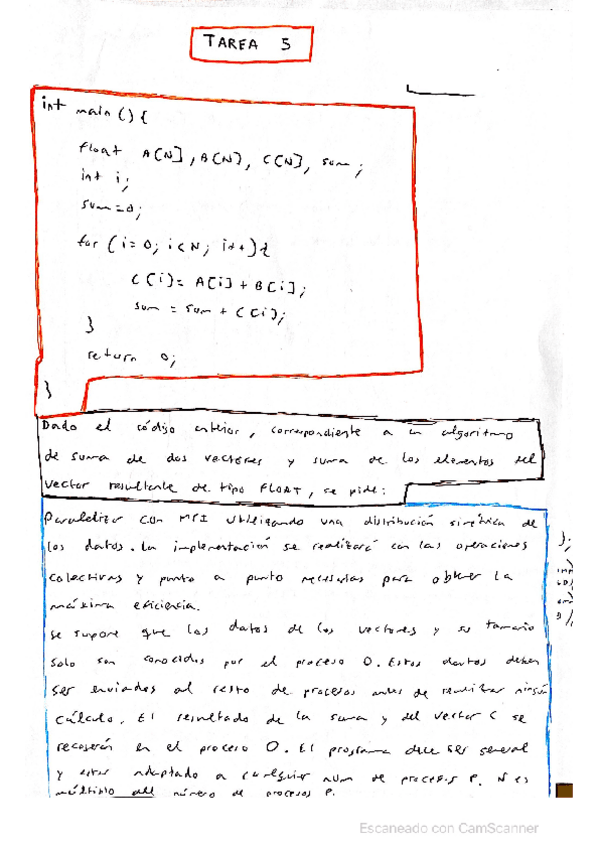 TAREA 5
int main () {
float A[N], B[N], C[N], sum;
int i;
sum=0;
for (i=0; i<N; i++){
C[i]= A[i] + B[i];
sum = sum + C[i];
}
return 0;
}
Dado el código anterior, correspondiente a un algoritmo
de suma de dos vectores y suma de los elementos del
vector resultante de tipo FLOAT, se pide:
Paralelizar con MPI utilizando una distribución simétrica de
los datos. La implementación se realizará con las operaciones
colectivas y punto a punto necesarias para obtener la
máxima eficiencia.
Se supone que los datos de los vectores y su tamaño
solo son conocidos por el proceso 0. Estos datos deben
ser enviados al resto de procesos antes de realizar ningún
cálculo. El resultado de la suma y del vector C se
recogerán en el proceso 0. El programa debe ser general
y estar adaptado a cualquier num de procesos P. N es
múltiplo del número de procesos P.
Escaneado con CamScanner